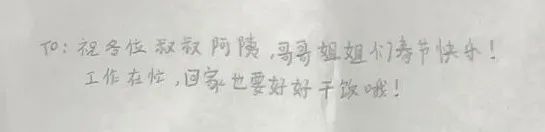 TO：祝各位叔叔阿姨，哥哥姐姐们春节快乐！
工作在忙，回家也要好好干饭哦！